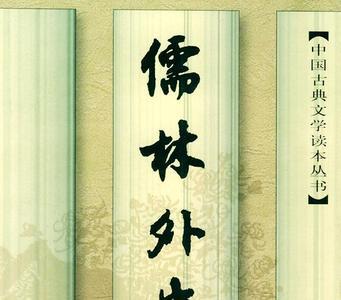 【中国古典文学读本丛书】
儒林外